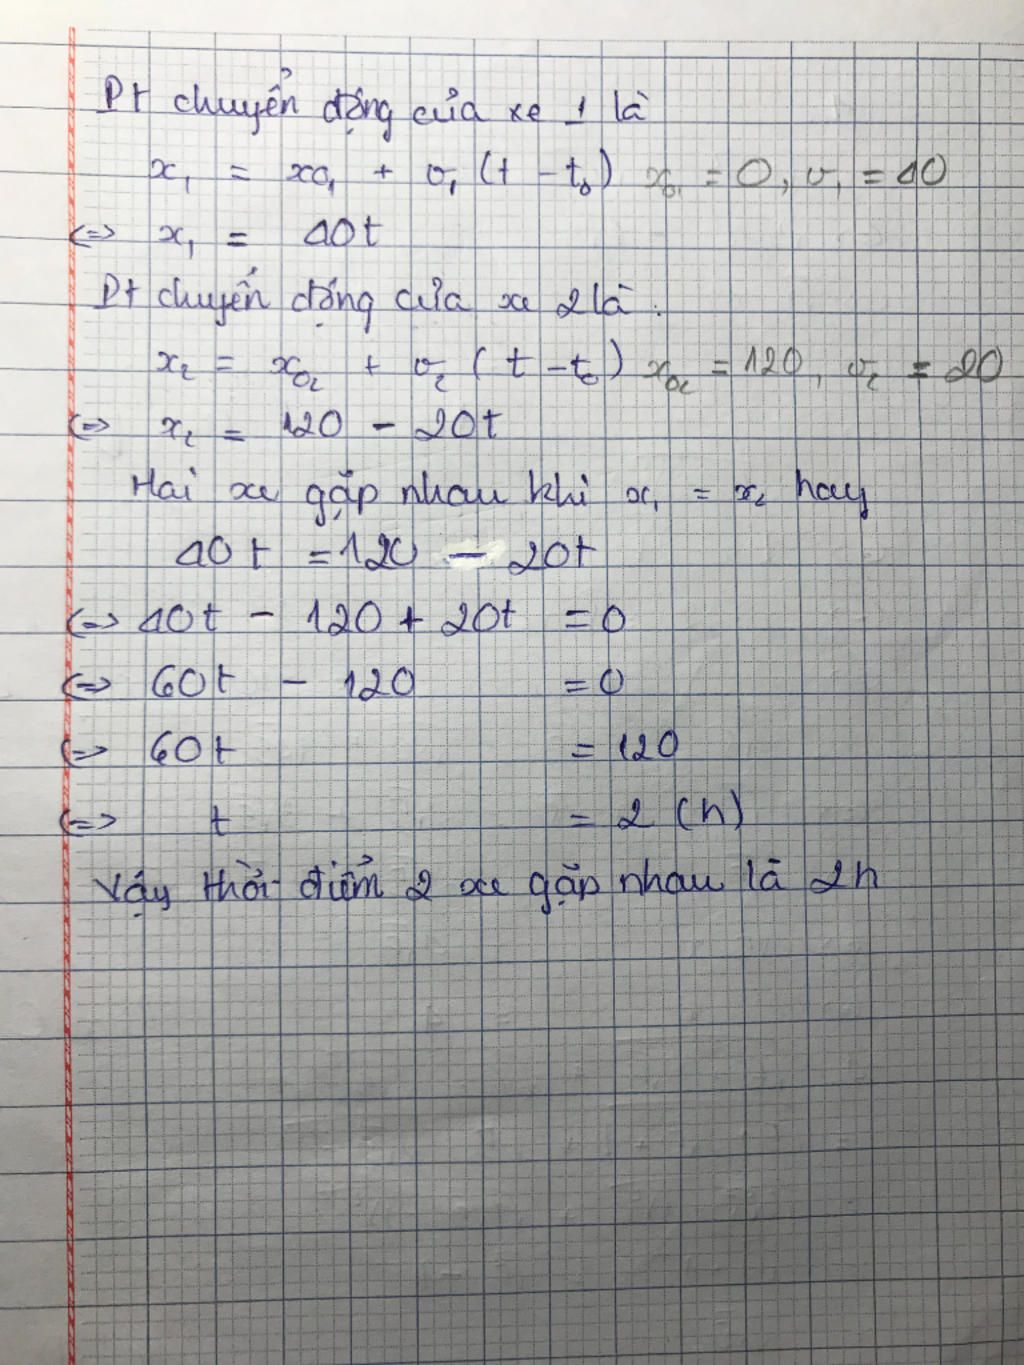 Pt chuyển động của xe 1 là
x₁ = x₀₁ + v₁ (t - t₀) x₀₁ = 0, v₁ = 40
<=> x₁ = 40t
Pt chuyển động của xe 2 là:
x₂ = x₀₂ + v₂ (t - t₀) x₀₂ = 120, v₂ = 20
<=> x₂ = 120 - 20t
Hai xe gặp nhau khi x₁ = x₂ hay
40t = 120 - 20t
<=> 40t - 120 + 20t = 0
<=> 60t - 120 = 0
<=> 60t = 120
<=> t = 2 (h)
Vậy thời điểm 2 xe gặp nhau là 2h